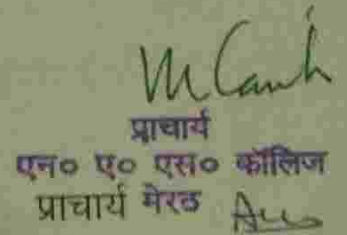 प्राचार्य
एन० ए० एस० कॉलिज
प्राचार्य मेरठ